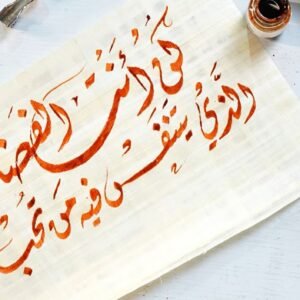 كن أنت الفضا
الذي يتنفس فيه من تحب